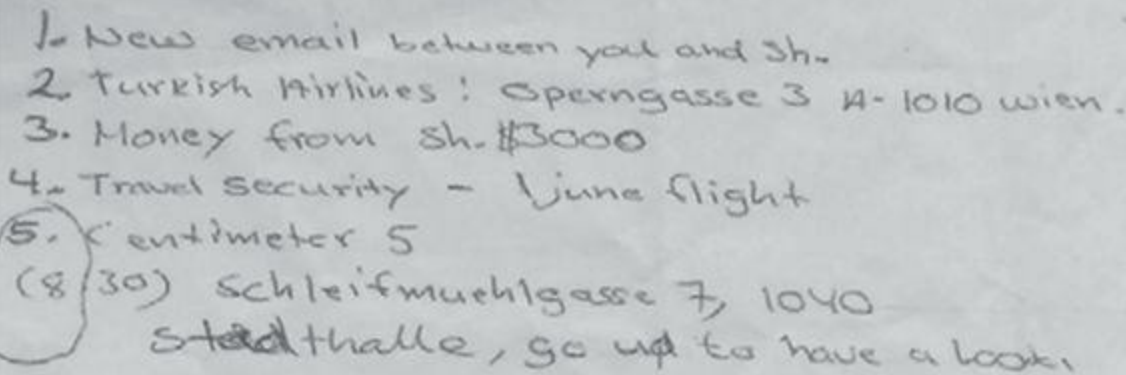 1. New email between you and Sh.
2. Turkish Airlines: Operngasse 3 A-1010 wien.
3. Money from Sh. $3000
4. Travel security - 1 June flight
5. Centimeter 5
(8/30) Schleifmuehlgasse 7, 1040
Stadthalle, go up to have a look.